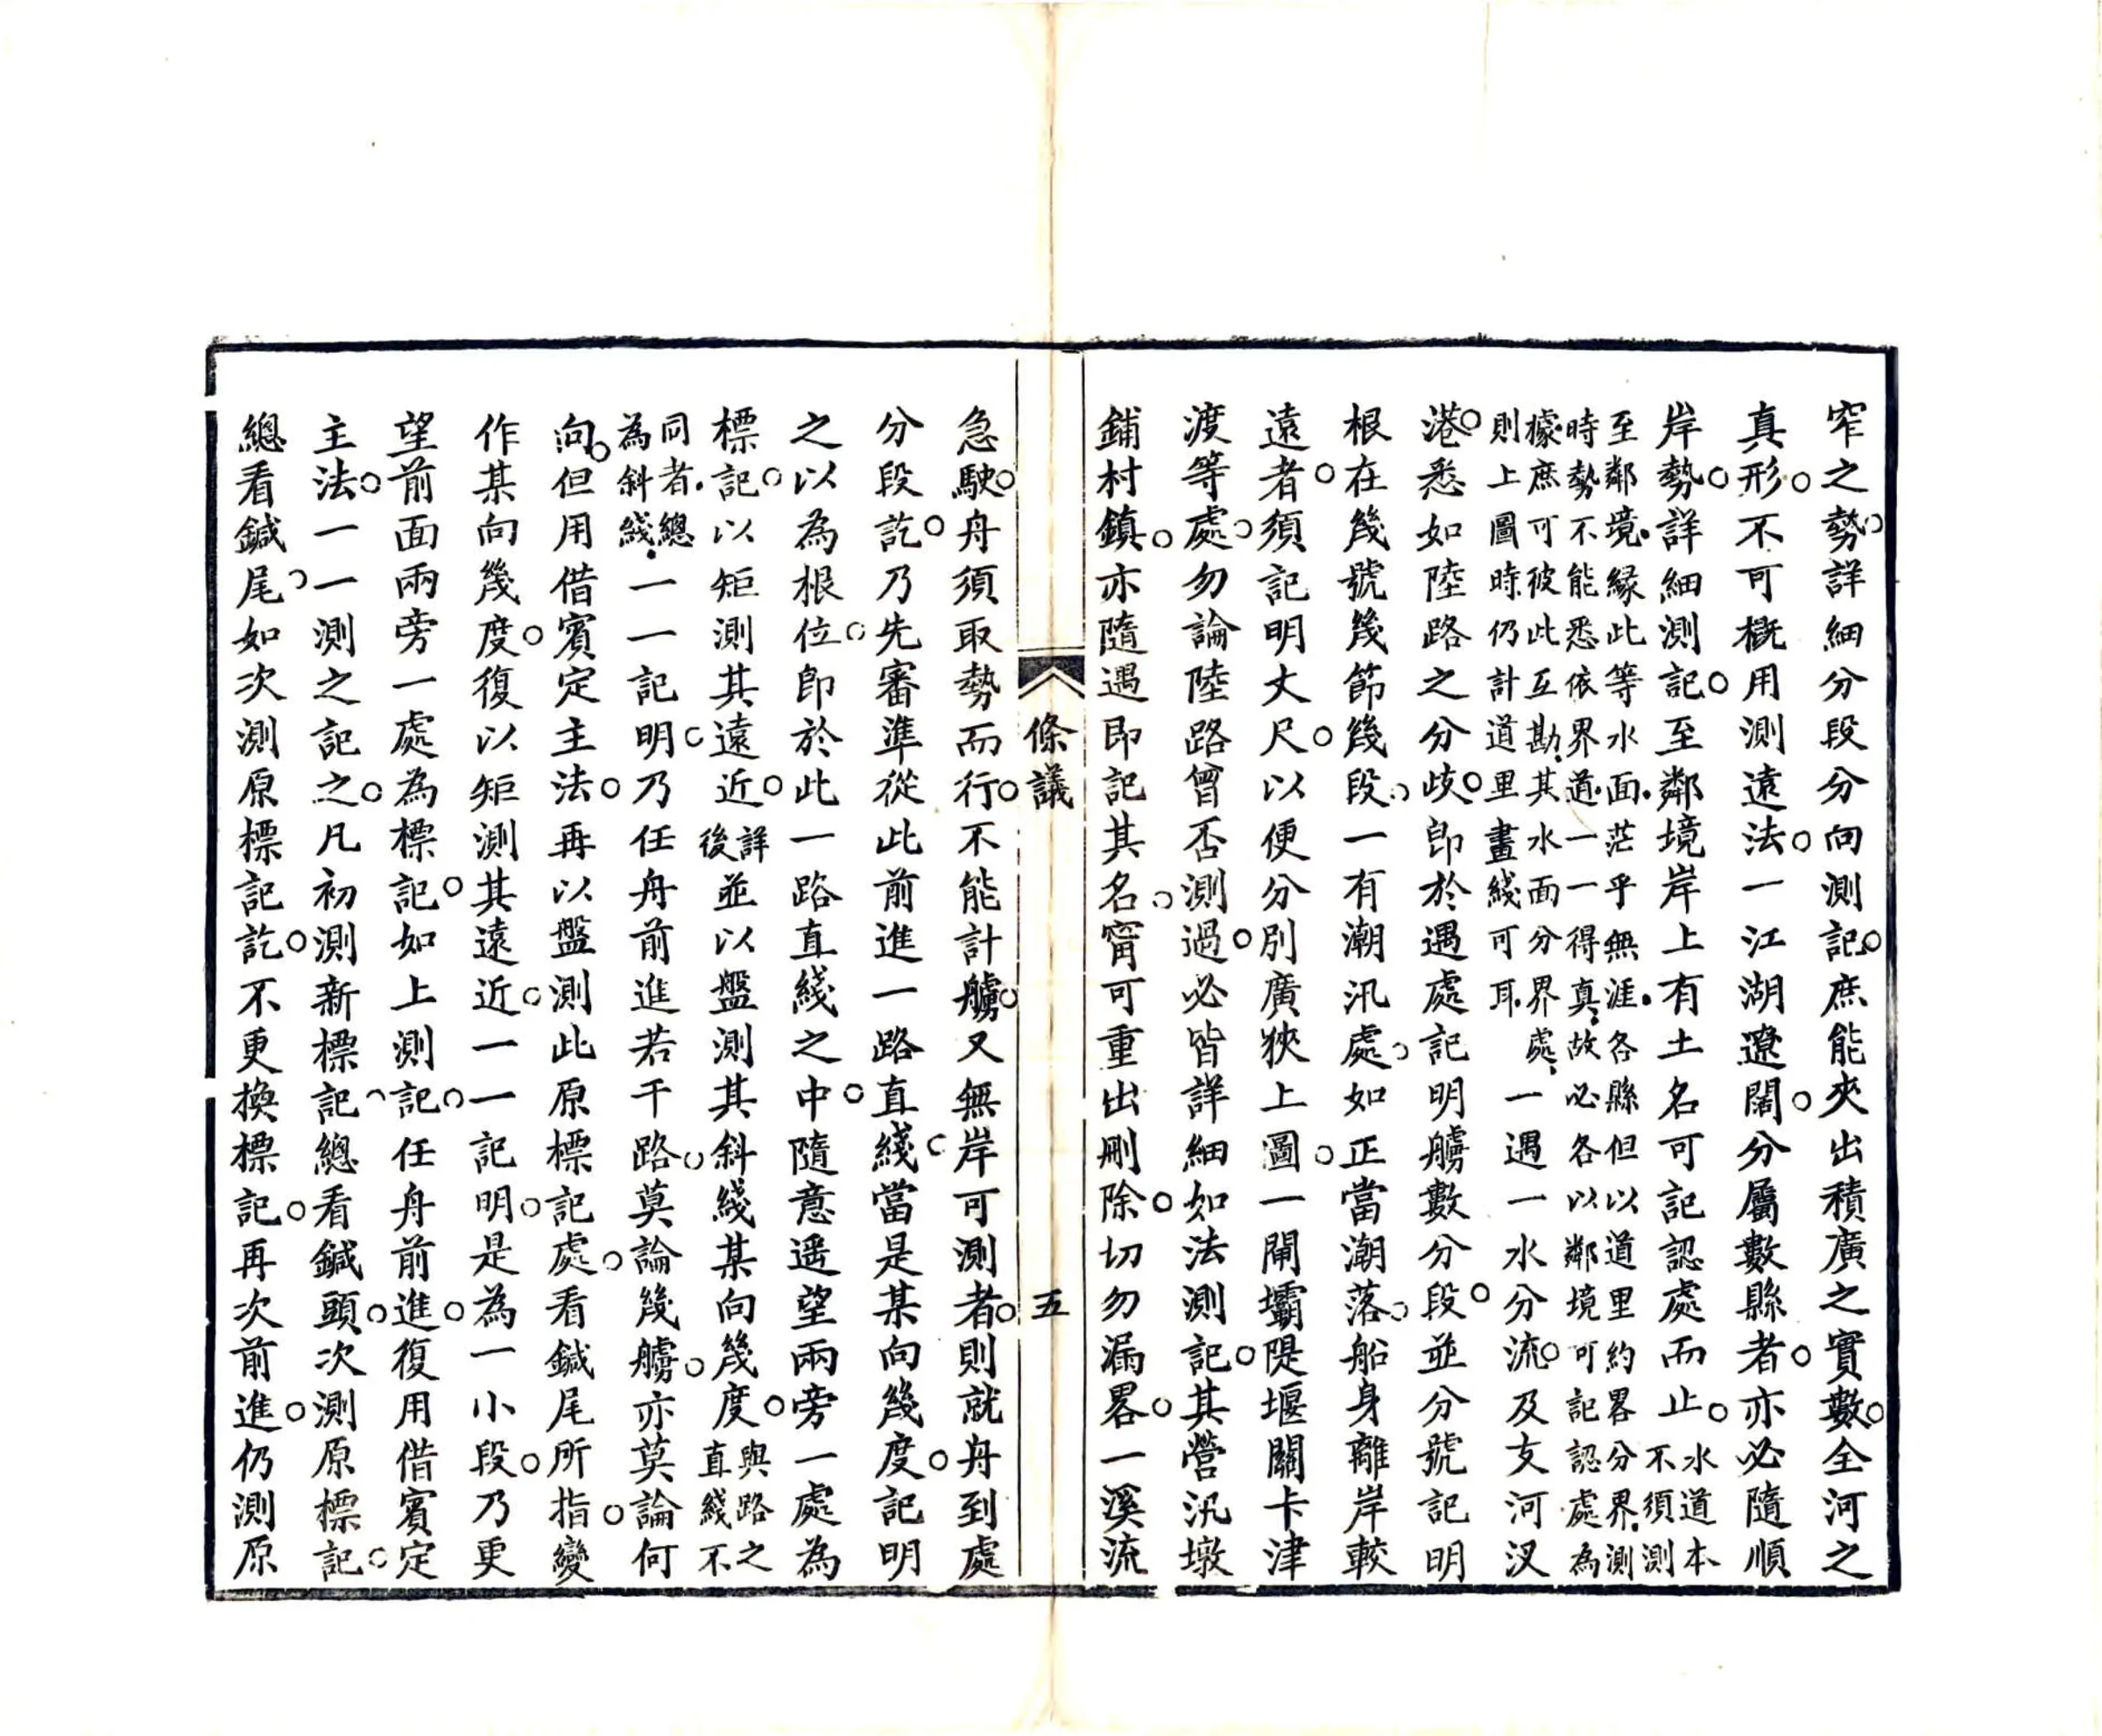 窄之勢。詳細分段分向測記。庶能夾出積廣之實數。全河之
真形。不可概用測遠法。一江湖遼闊。分屬數縣者。亦必隨順
岸勢。詳細測記。至鄰境岸上有土名可記認處而止。水道本
不須測
至鄰境、緣此等水面、茫乎無涯、各縣但以道里約畧分界、測
時勢不能悉依界道、一一得真、故必各以鄰境可記認處為
據、庶可彼此互勘、其水面分界處、
則上圖時、仍計道里畫綫可耳、一遇一水分流。及支河汊
港。悉如陸路之分歧。即於遇處記明艣數分段。並分號記明
根在幾號幾節幾段。一有潮汛處。如正當潮落。船身離岸較
遠者。須記明丈尺。以便分別廣狹上圖。一閘壩隄堰關卡津
渡等處。勿論陸路曾否測過。必皆詳細如法測記。其營汛墩
鋪村鎮。亦隨遇即記其名。甯可重出刪除。切勿漏畧。一溪流
條議
五
急駛。舟須取勢而行。不能計艣。又無岸可測者。則就舟到處
分段訖。乃先審準從此前進一路直綫。當是某向幾度。記明
之以為根位。即於此一路直綫之中。隨意遥望兩旁一處為
標記。以矩測其遠近。詳
後並以盤測其斜綫某向幾度。與路之
直綫不
同者、總
為斜綫、一一記明。乃任舟前進若干路。莫論幾艣。亦莫論何
向。但用借賓定主法。再以盤測此原標記處。看鍼尾所指。變
作某向幾度。復以矩測其遠近。一一記明。是為一小段。乃更
望前面兩旁一處為標記。如上測記。任舟前進。復用借賓定
主法。一一測之記之。凡初測新標記。總看鍼頭。次測原標記。
總看鍼尾。如次測原標記訖。不更換標記。再次前進。仍測原